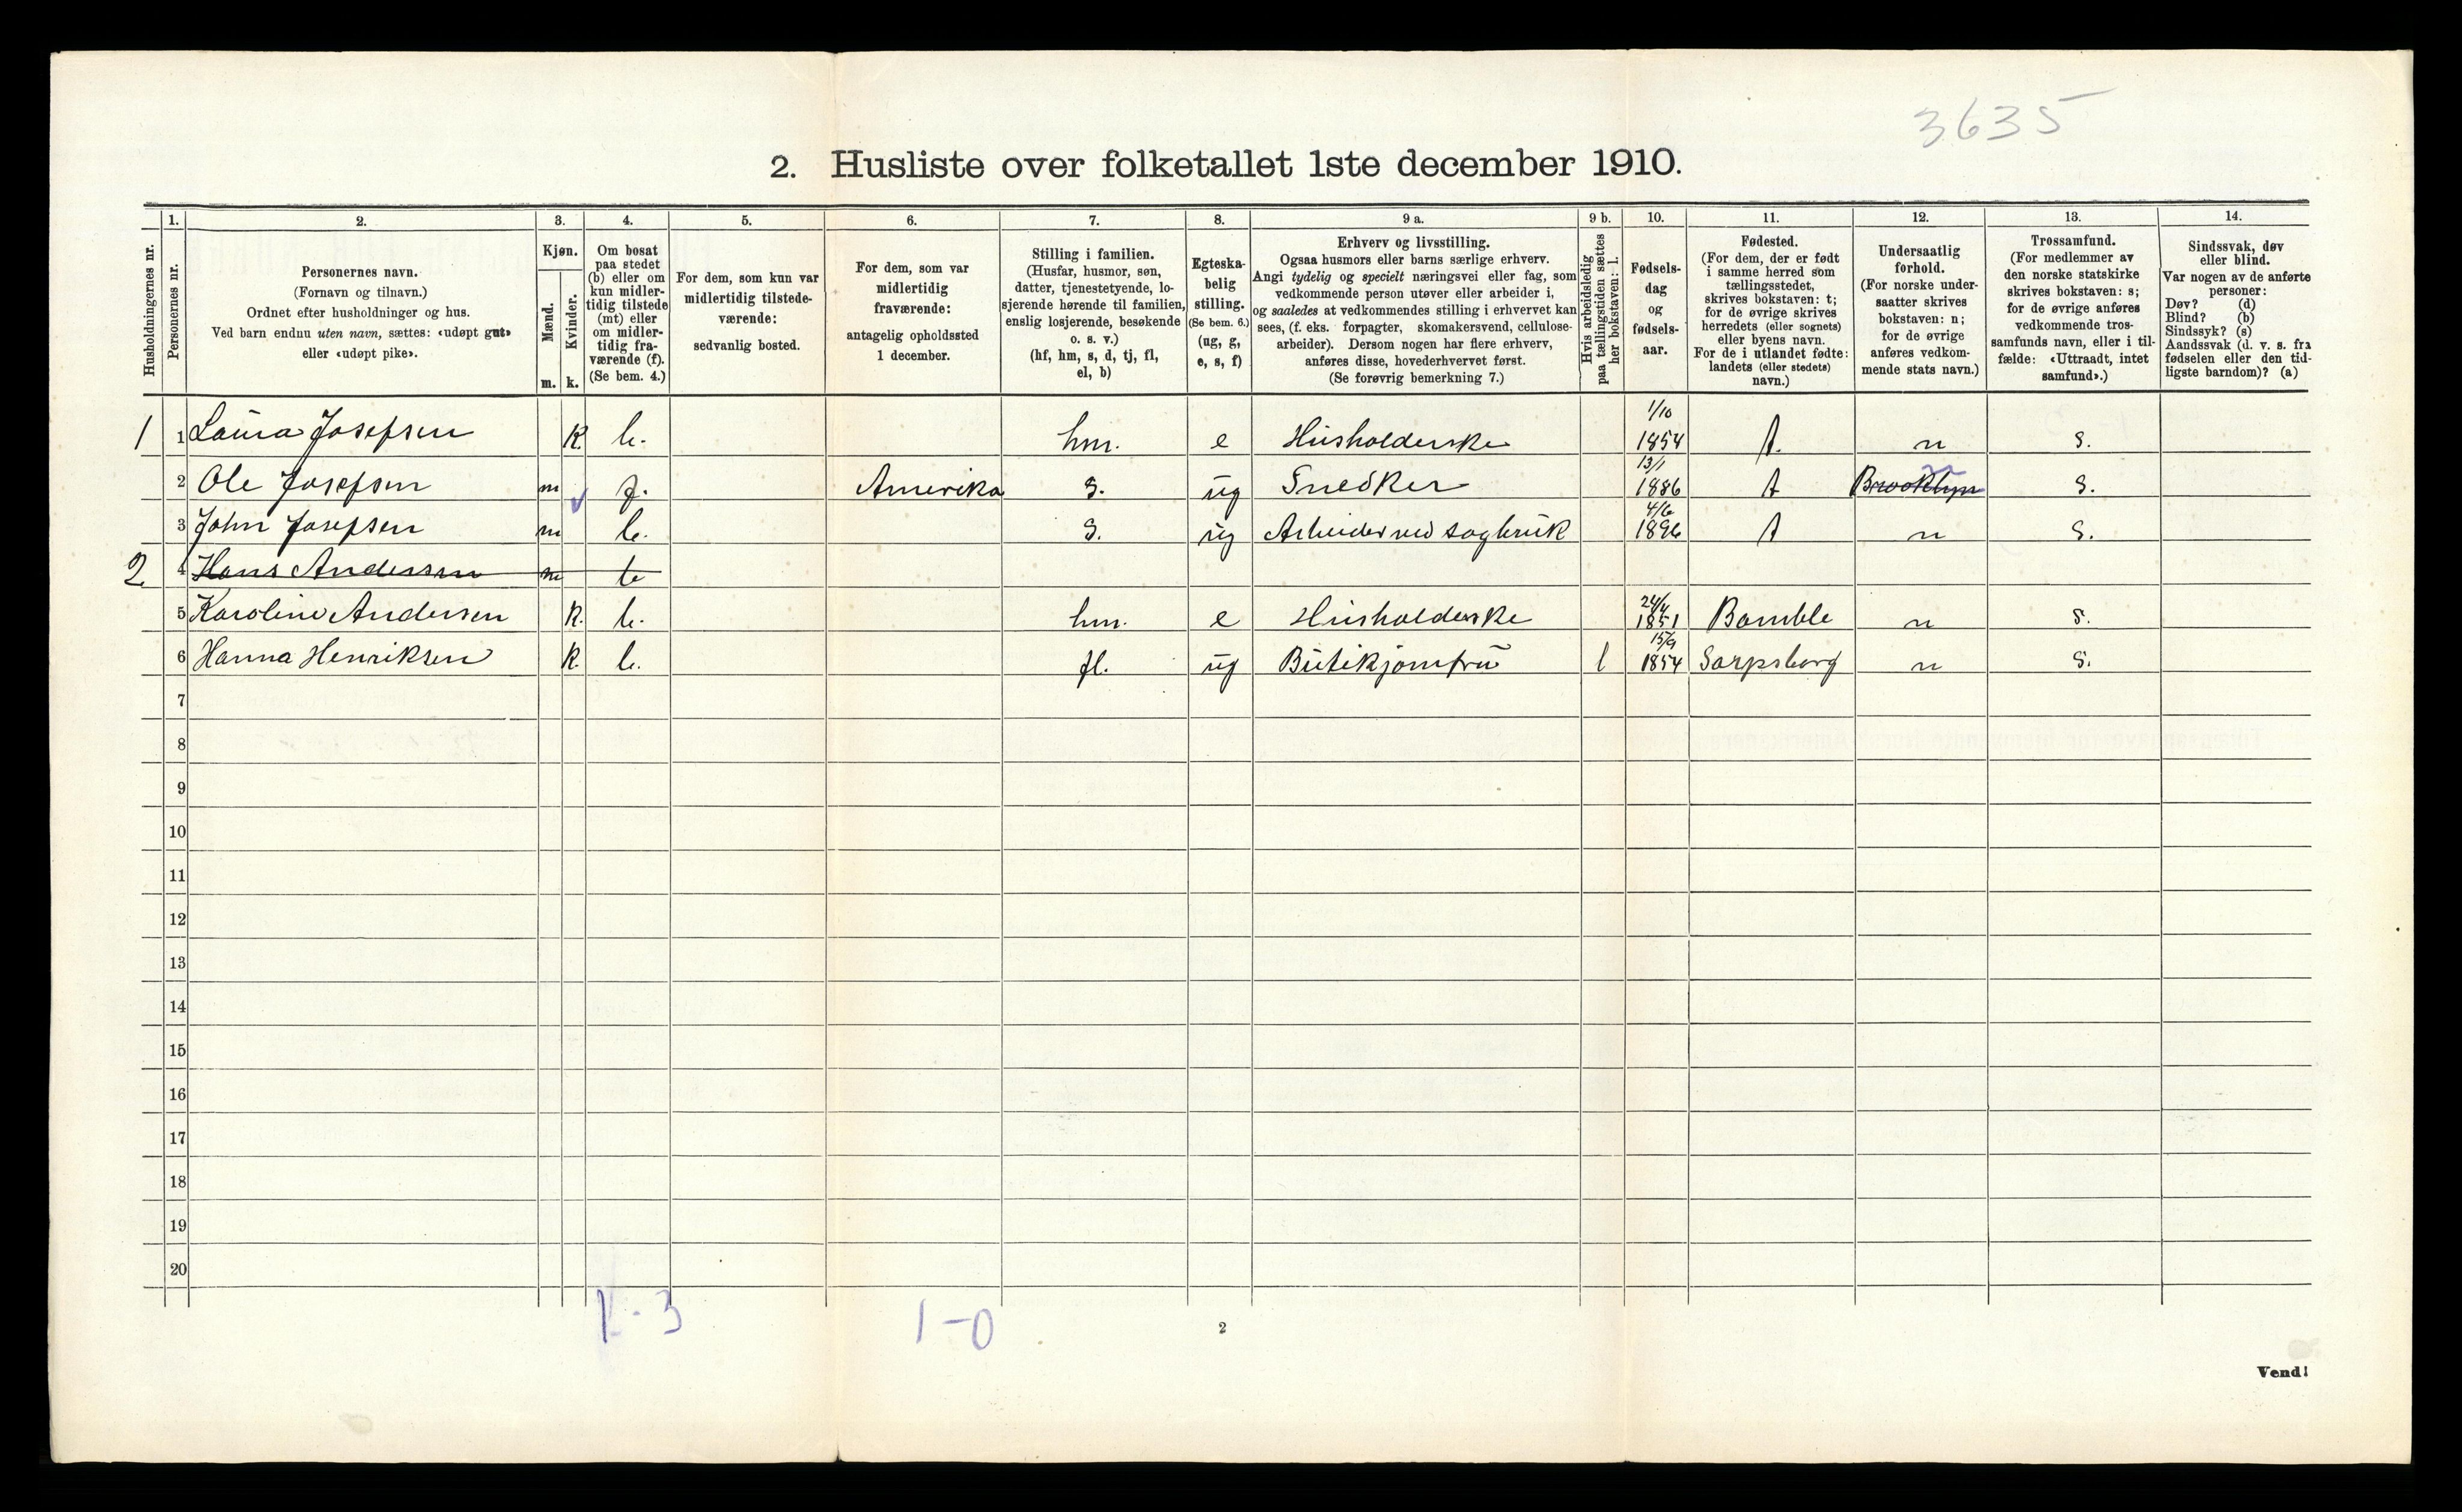 3635
2. Husliste over folketallet 1ste december 1910.
Husholdningernes nr.
1.
Personernes nr.
2.
Personernes navn.
(Fornavn og tilnavn.)
Ordnet efter husholdninger og hus.
Ved barn endnu uten navn, sættes: «udøpt gut»
eller «udøpt pike».
3.
Kjøn.
Mænd.
m.
Kvinder.
k.
4.
Om bosat
paa stedet
(b) eller om
kun midler-
tidig tilstede
(mt) eller
om midler-
tidig fra-
værende (f).
(Se bem. 4.)
5.
For dem, som kun var
midlertidig tilstede-
værende:
sedvanlig bosted.
6.
For dem, som var
midlertidig
fraværende:
antagelig opholdssted
1 december.
7.
Stilling i familien.
(Husfar, husmor, søn,
datter, tjenestetyende, lo-
sjerende hørende til familien,
enslig losjerende, besøkende
o. s. v.)
(hf, hm, s, d, tj, fl,
el, b)
8.
Egteska-
belig
stilling.
(Se bem. 6.)
(ug, g,
e, s, f)
9 a.
Erhverv og livsstilling.
Ogsaa husmors eller barns særlige erhverv.
Angi tydelig og specielt næringsvei eller fag, som
vedkommende person utøver eller arbeider i,
og saaledes at vedkommendes stilling i erhvervet kan
sees, (f. eks. forpagter, skomakersvend, cellulose-
arbeider). Dersom nogen har flere erhverv,
anføres disse, hovederhvervet først.
(Se forøvrig bemerkning 7.)
9 b.
Hvis arbeidsledig
paa tællingstiden sættes
her bokstaven: l.
10.
Fødsels-
dag
og
fødsels-
aar.
11.
Fødested.
(For dem, der er født
i samme herred som
tællingsstedet,
skrives bokstaven: t;
for de øvrige skrives
herredets (eller sognets)
eller byens navn.
For de i utlandet fødte:
landets (eller stedets)
navn.)
12.
Undersaatlig
forhold.
(For norske under-
saatter skrives
bokstaven: n;
for de øvrige
anføres vedkom-
mende stats navn.)
13.
Trossamfund.
(For medlemmer av
den norske statskirke
skrives bokstaven: s;
for de øvrige anføres
vedkommende tros-
samfunds navn, eller i til-
fælde: «Uttraadt, intet
samfund».)
14.
Sindssvak, døv
eller blind.
Var nogen av de anførte
personer:
Døv? (d)
Blind? (b)
Sindssyk? (s)
Aandssvak (d. v. s. fra
fødselen eller den tid-
ligste barndom)? (a)
1 1 Laura Josefsen k. b. hm. e Husholderske 1/10 1854 t. n s.
2 Ole Josefsen m f. Amerika s. ug Snedker 13/1 1886 t Brooklyn n s.
3 John Josefsen m b. s. ug Arbeider ved sagbruk 4/6 1896 t n s.
2 4 Hans Andersen m b
5 Karoline Andersen k. b. hm. e Husholderske 24/4 1851 Bamble n s.
6 Hanna Henriksen k. b. fl. ug Butikjomfru l 15/9 1854 Sarpsborg n s.
7
8
9
10
11
12
13
14
15
16
17
18
19
20
1-3 1-0
2
Vend!